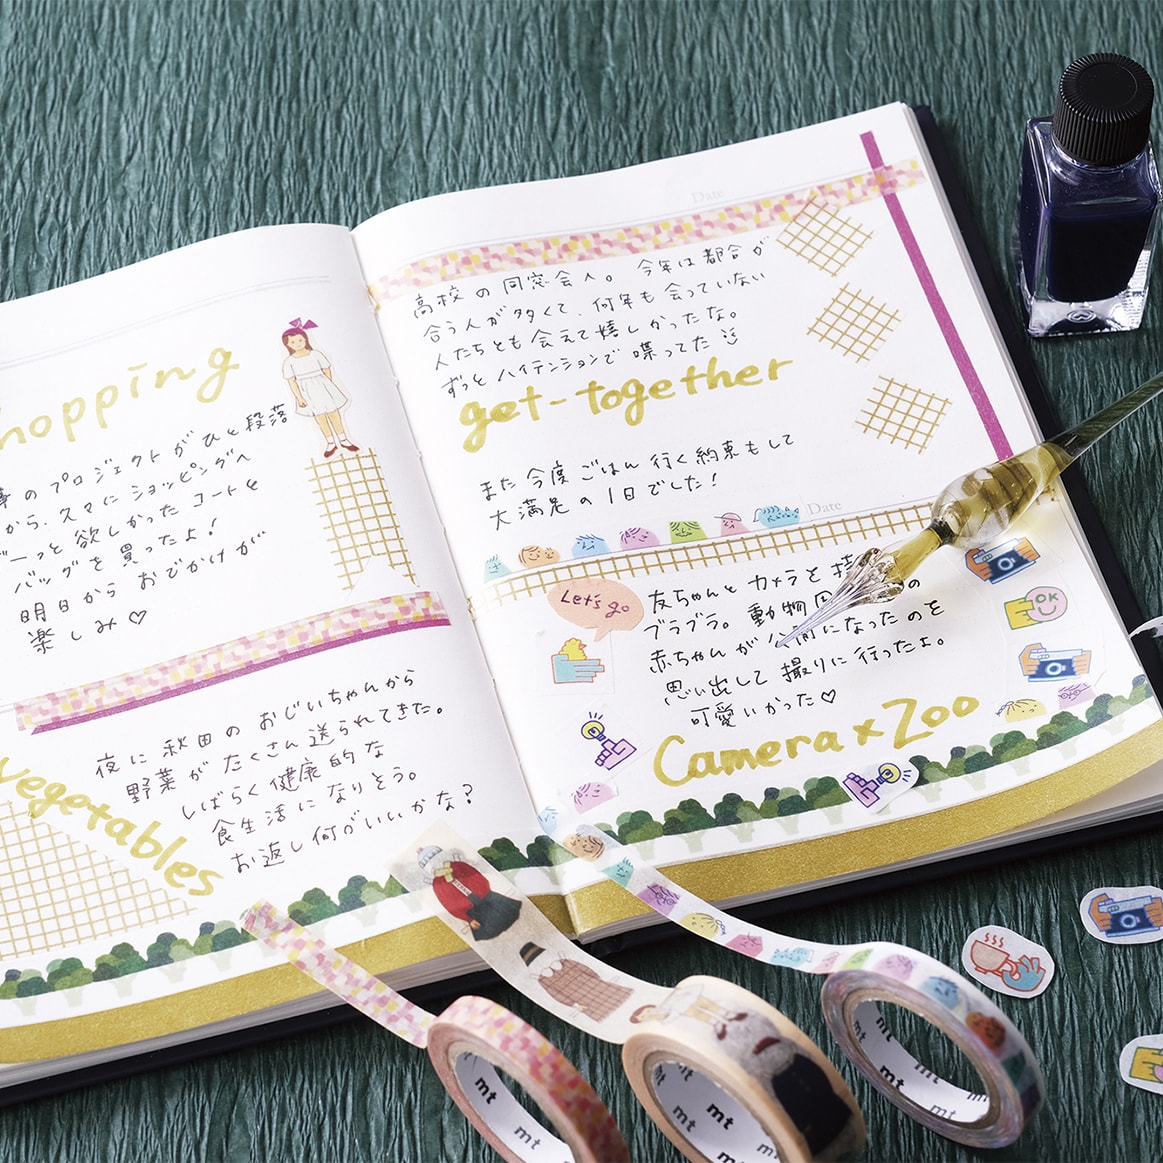 hopping
のプロジェクトがひと段落
から、久々にショッピングへ
ーっと欲しかったコートと
バッグを買ったよ!
明日からおでかけが
楽しみ♡
vegetables
夜に秋田のおじいちゃんから
野菜がたくさん送られてきた。
しばらく健康的な
食生活になりそう。
お返し何がいいかな?
Date
高校の同窓会へ。今年は都合が
合う人が多くて、何年も会っていない
人たちとも会えて嬉しかったな。
ずっとハイテンションで喋ってた
get-together
また今度ごはん行く約束もして
大満足の1日でした!
Date
Let's go
友ちゃんとカメラと
ブラブラ。動物
赤ちゃんが公開になったのを
思い出して撮りに行ったよ。
可愛いかった♡
Camera x Zoo
OK
mt
mt
mt
mt
mt
mt
mt
mt